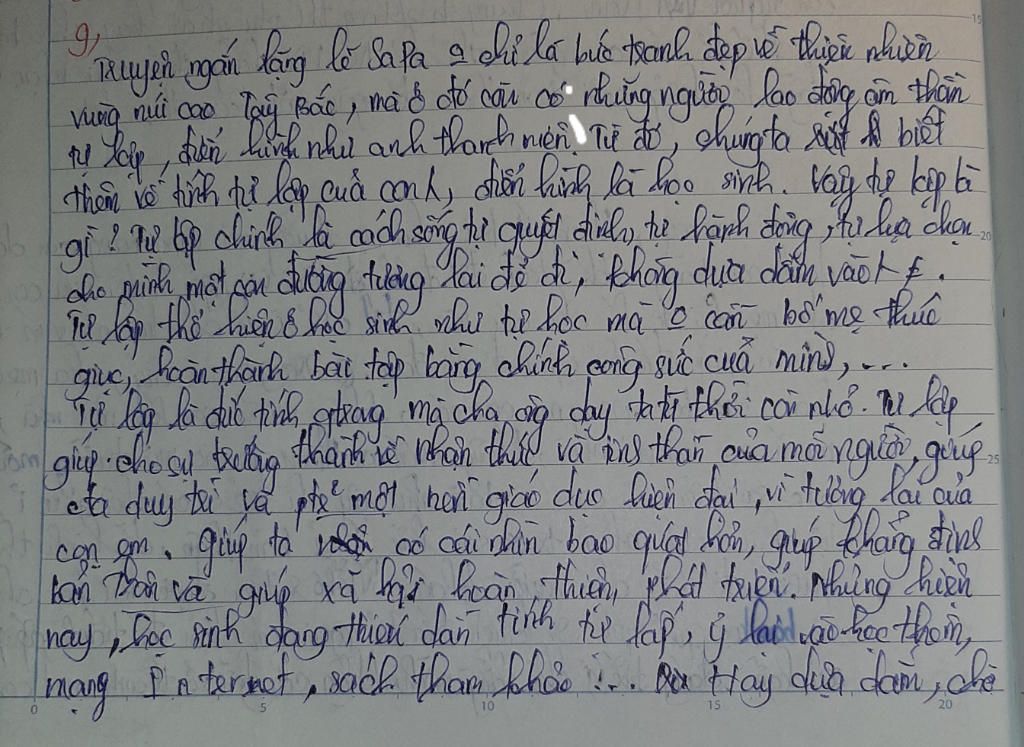 9,
Truyện ngắn lặng lẽ SaPa ko chỉ là bức tranh đẹp về thiên nhiên
vùng núi cao Tây Bắc, mà ở đó còn có những người lao động âm thầm
tự lập, điển hình như anh thanh niên. Từ đó, chúng ta biết
thêm về tính tự lập của con, điển hình là học sinh. Vậy tự lập là
gì? Tự lập chính là cách sống tự quyết định, tự hành động, tự lựa chọn
cho mình một con đường tương lai để đi, không dựa dẫm vào
Tự lập thể hiện ở học sinh như tự học mà ko cần bố mẹ thúc
giục, hoàn thành bài tập bằng chính công sức của mình, ...
Tự lập là đức tính qtrọng mà cha ông dạy ta từ thời còn nhỏ. Tự lập
giúp cho sự trưởng thành về nhận thức và của mỗi người, giúp
cta duy trì và một nền giáo dục hiện đại, vì tương lai của
con em. giúp ta có cái nhìn bao quát hơn, giúp khẳng định
bản thân và giúp xã hội hoàn thiện, phát triển. Nhưng hiện
nay, học sinh đang thiếu dần tính tự lập, ỷ lại vào học thêm,
mạng Internet, sách tham khảo ... Hay dựa dẫm, chờ
15
20
25
0 5 10 15 20